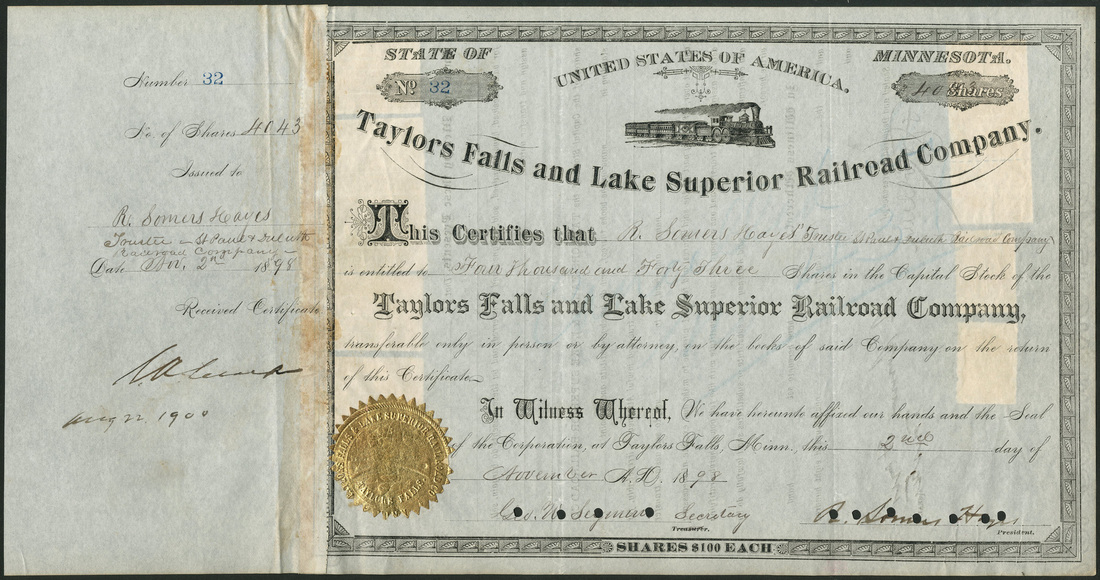 Number 32
No. of Shares 4043
Issued to
R. Somers Hayes
Trustee St Paul & Duluth
Railroad Company
Date Nov. 2nd 1898
Received Certificate
Aug 22 1900
STATE OF
UNITED STATES OF AMERICA.
MINNESOTA.
No 32
4043 Shares
Taylors Falls and Lake Superior Railroad Company.
This Certifies that R. Somers Hayes Trustee St Paul & Duluth Railroad Company
is entitled to Four Thousand and Forty Three Shares in the Capital Stock of the
Taylors Falls and Lake Superior Railroad Company,
transferable only in person or by attorney, on the books of said Company, on the return
of this Certificate.
In Witness Whereof, We have hereunto affixed our hands and the Seal
of the Corporation, at Taylors Falls, Minn. this 2nd day of
November A.D. 1898
Geo. W. Secretary
R. Somers Hayes
Treasurer.
President.
SHARES $100 EACH